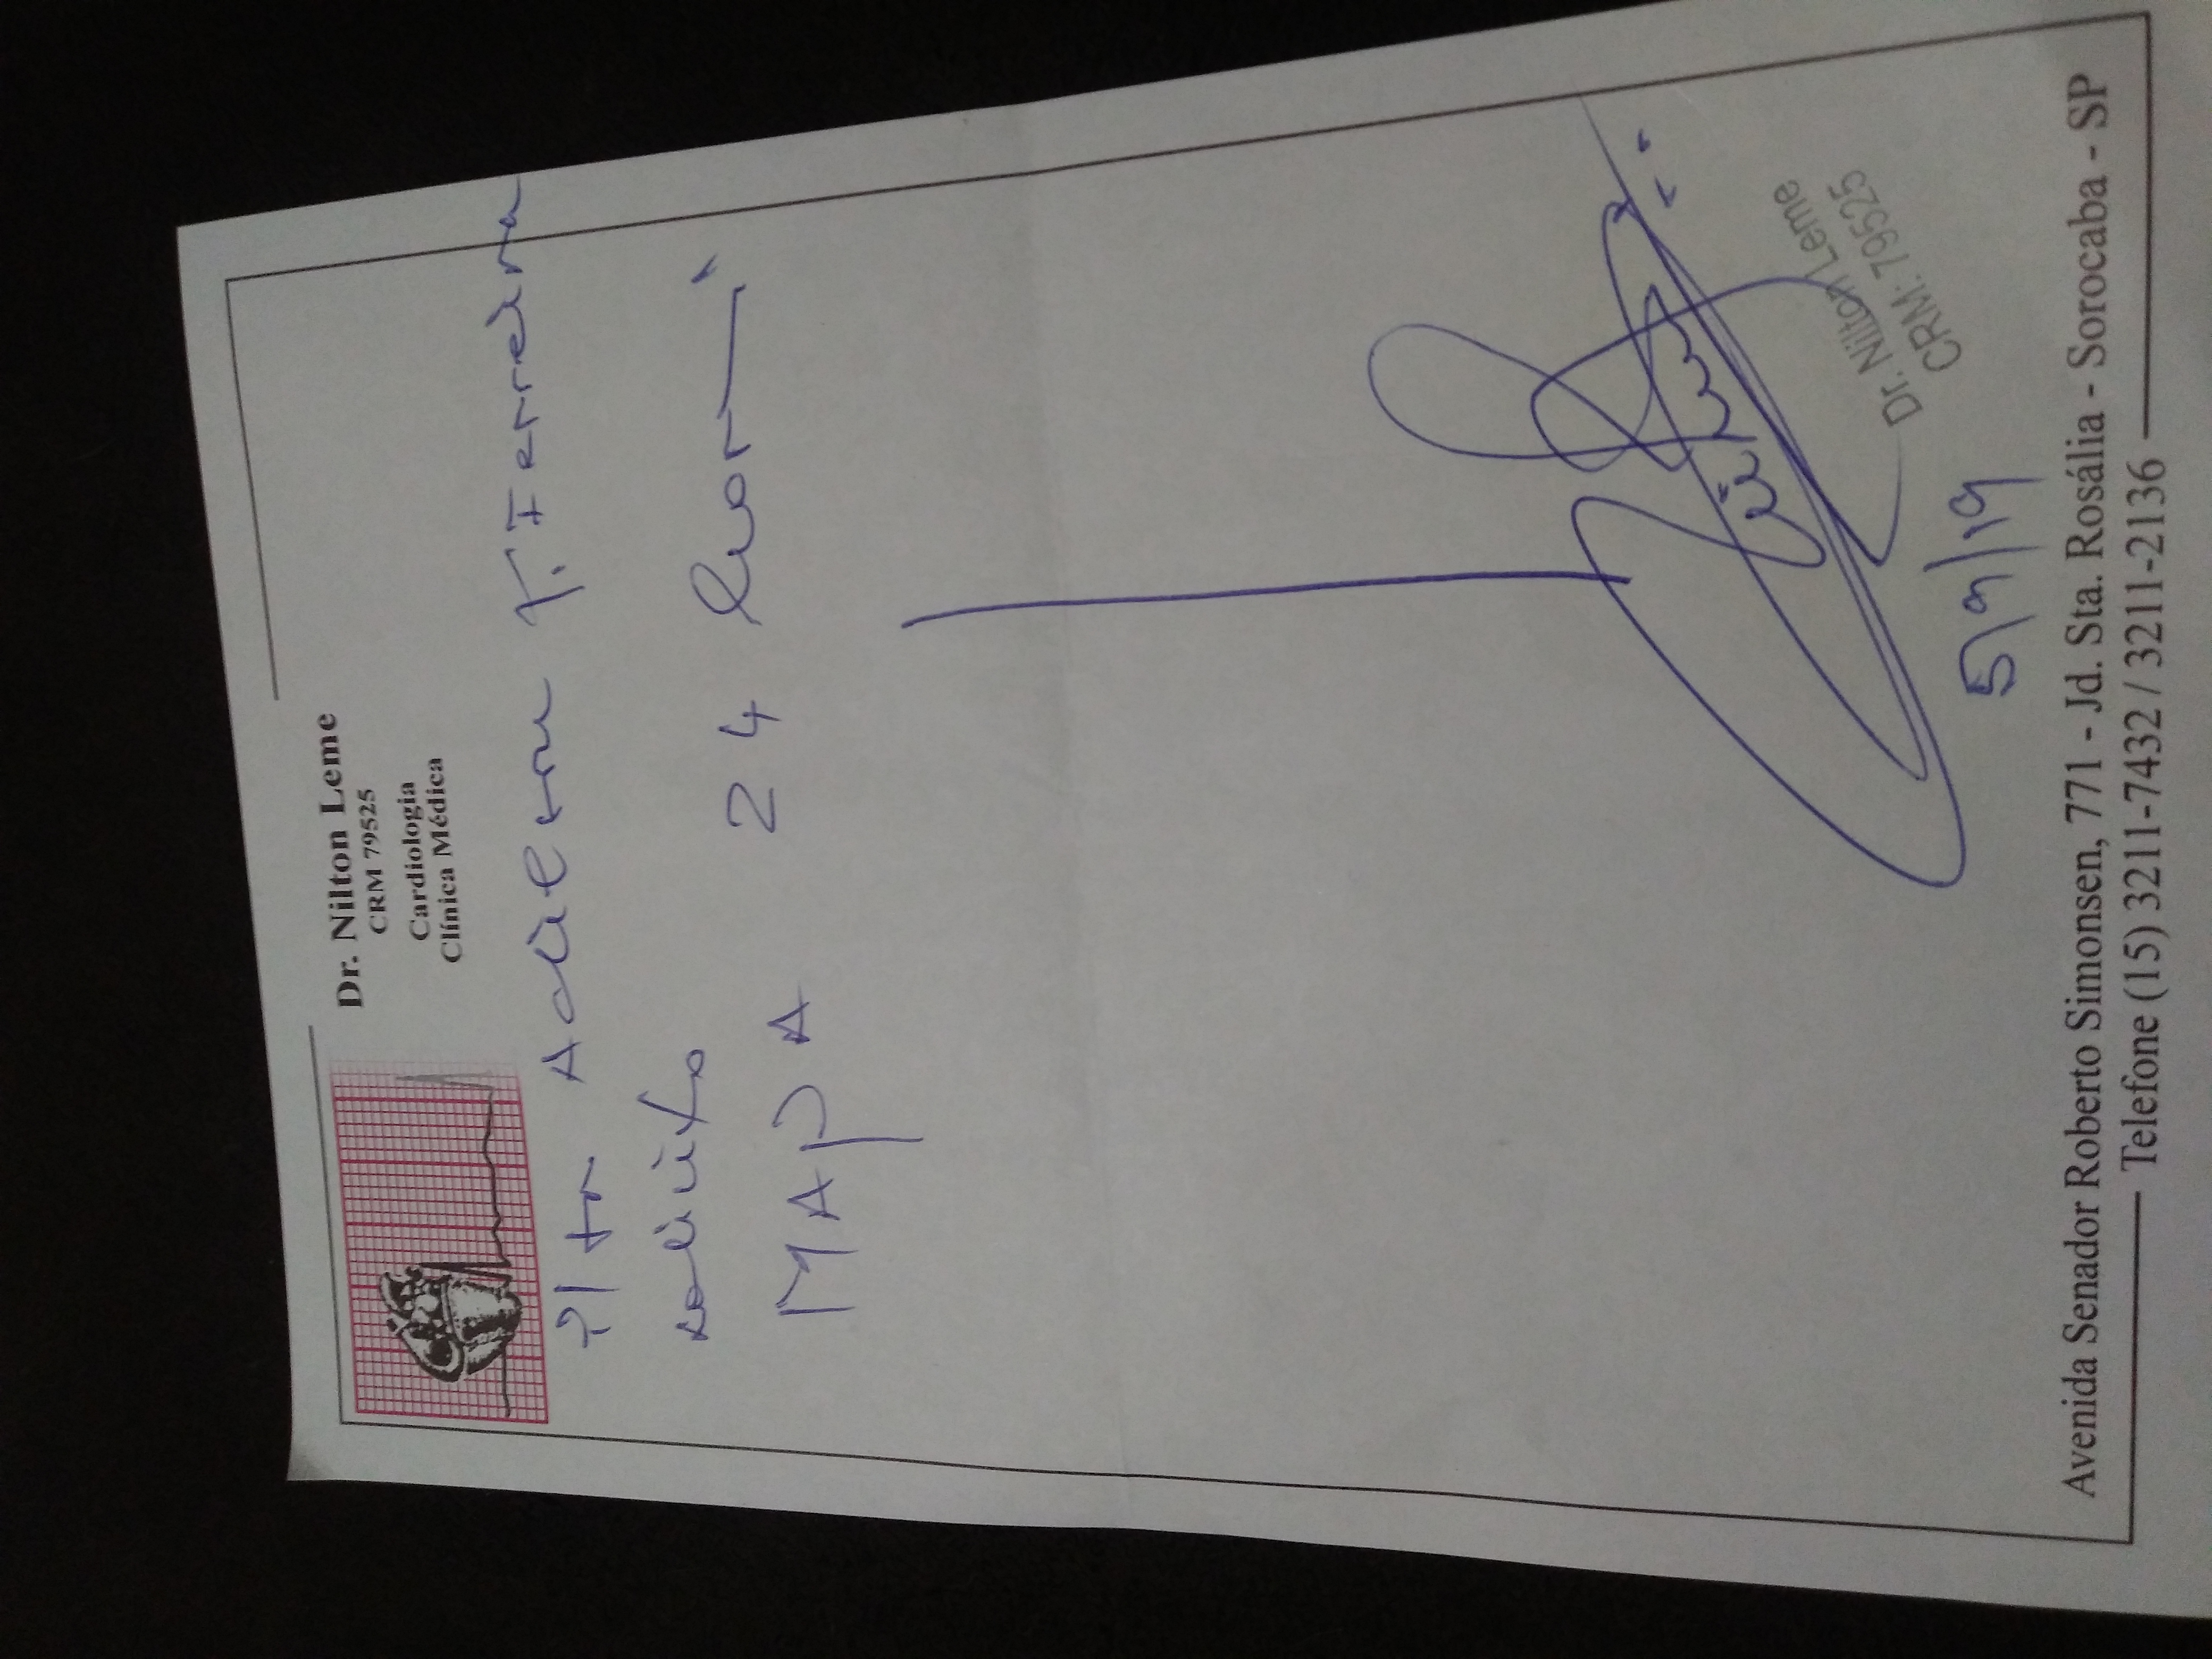 Dr. Nilton Leme
CRM 79525
Cardiologia
Clínica Médica
P/ Adilson F. Ferreira
solicito
MAPA 24 horas
Dr. Nilton Leme
CRM: 79525
5/9/19
Avenida Senador Roberto Simonsen, 771 - Jd. Sta. Rosália - Sorocaba - SP
Telefone (15) 3211-7432 / 3211-2136